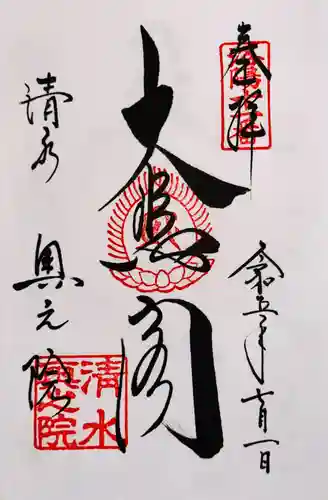 奉拝
令和五年七月一日
大悲閣
清水
奥之院
清水
奥之院